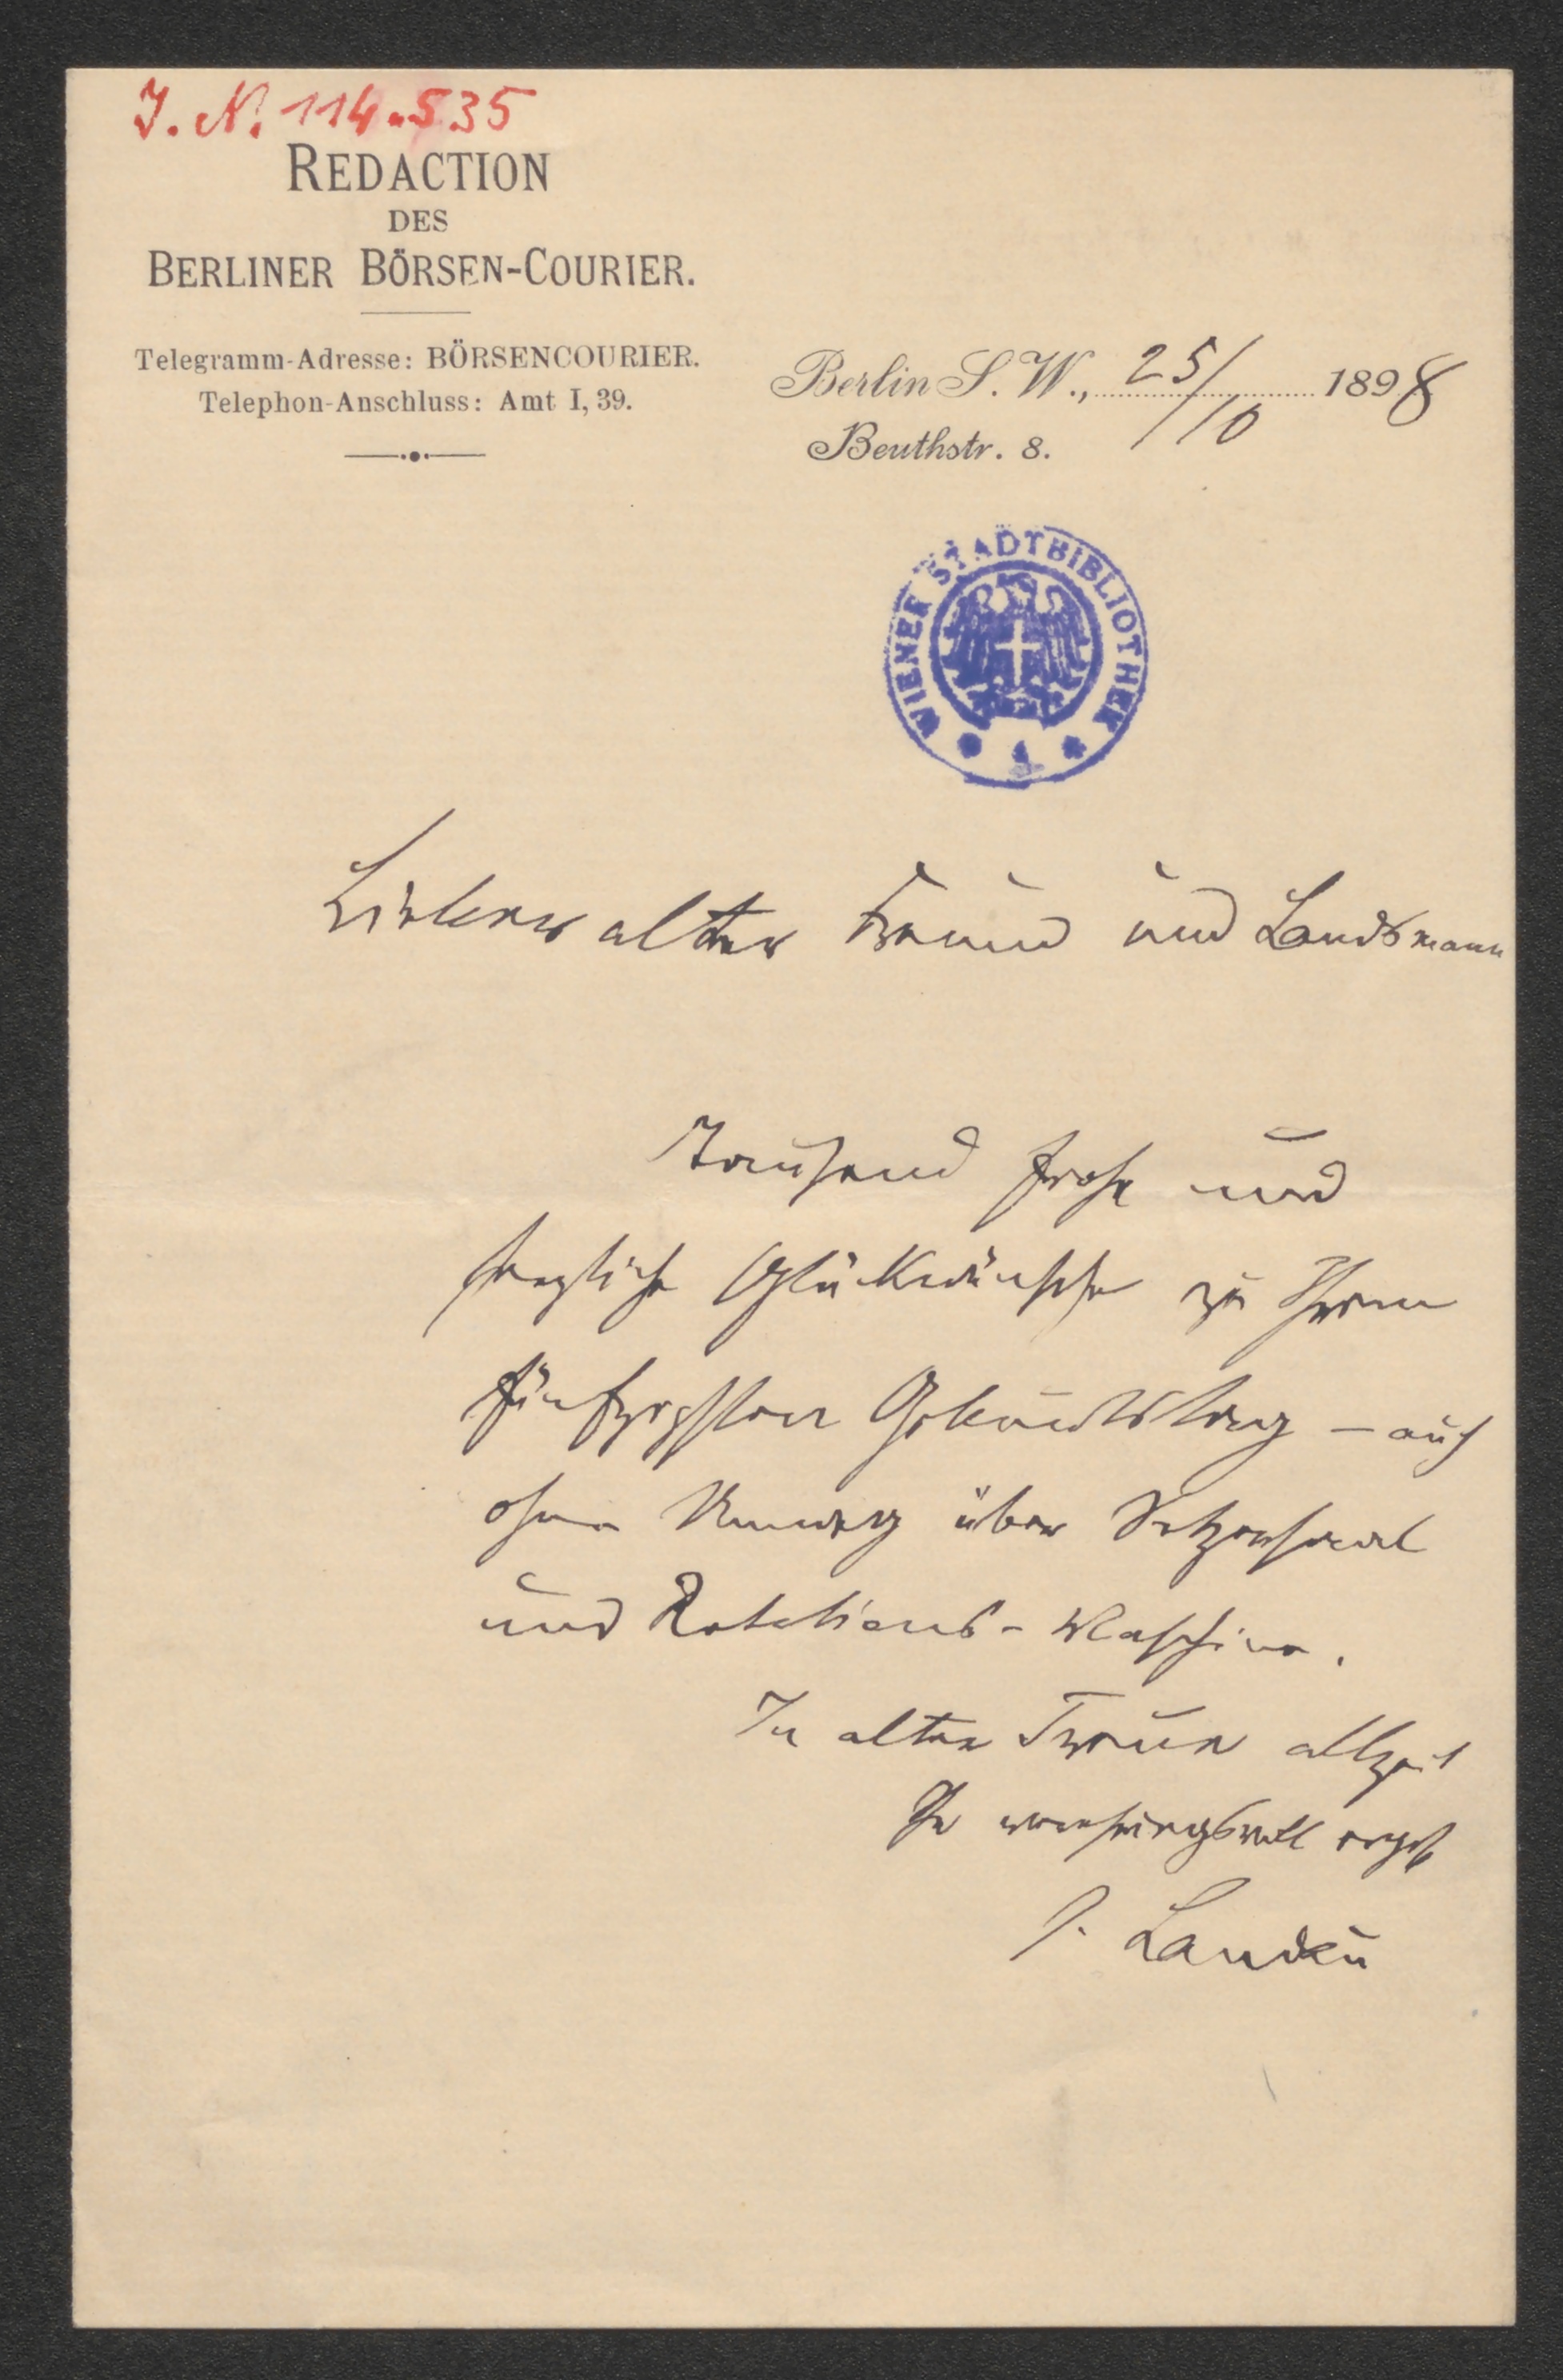 J. N. 114.535
REDACTION
DES
BERLINER BÖRSEN-COURIER.
Telegramm-Adresse: BÖRSENCOURIER.
Telephon-Anschluss: Amt I, 39.
Berlin S. W., 25/10 1898
Beuthstr. 8.
WIENER STADTBIBLIOTHEK
Lieber alter Freund und Landsmann
Tausend frohe und
herzliche Glückwünsche zu Ihrem
fünfzigsten Geburtstag – auch
ohne Umweg über Setzersaal
und Rotations-Maschine.
In alter Treue allzeit
Ihr verehrungsvoll ergb
J. Landau